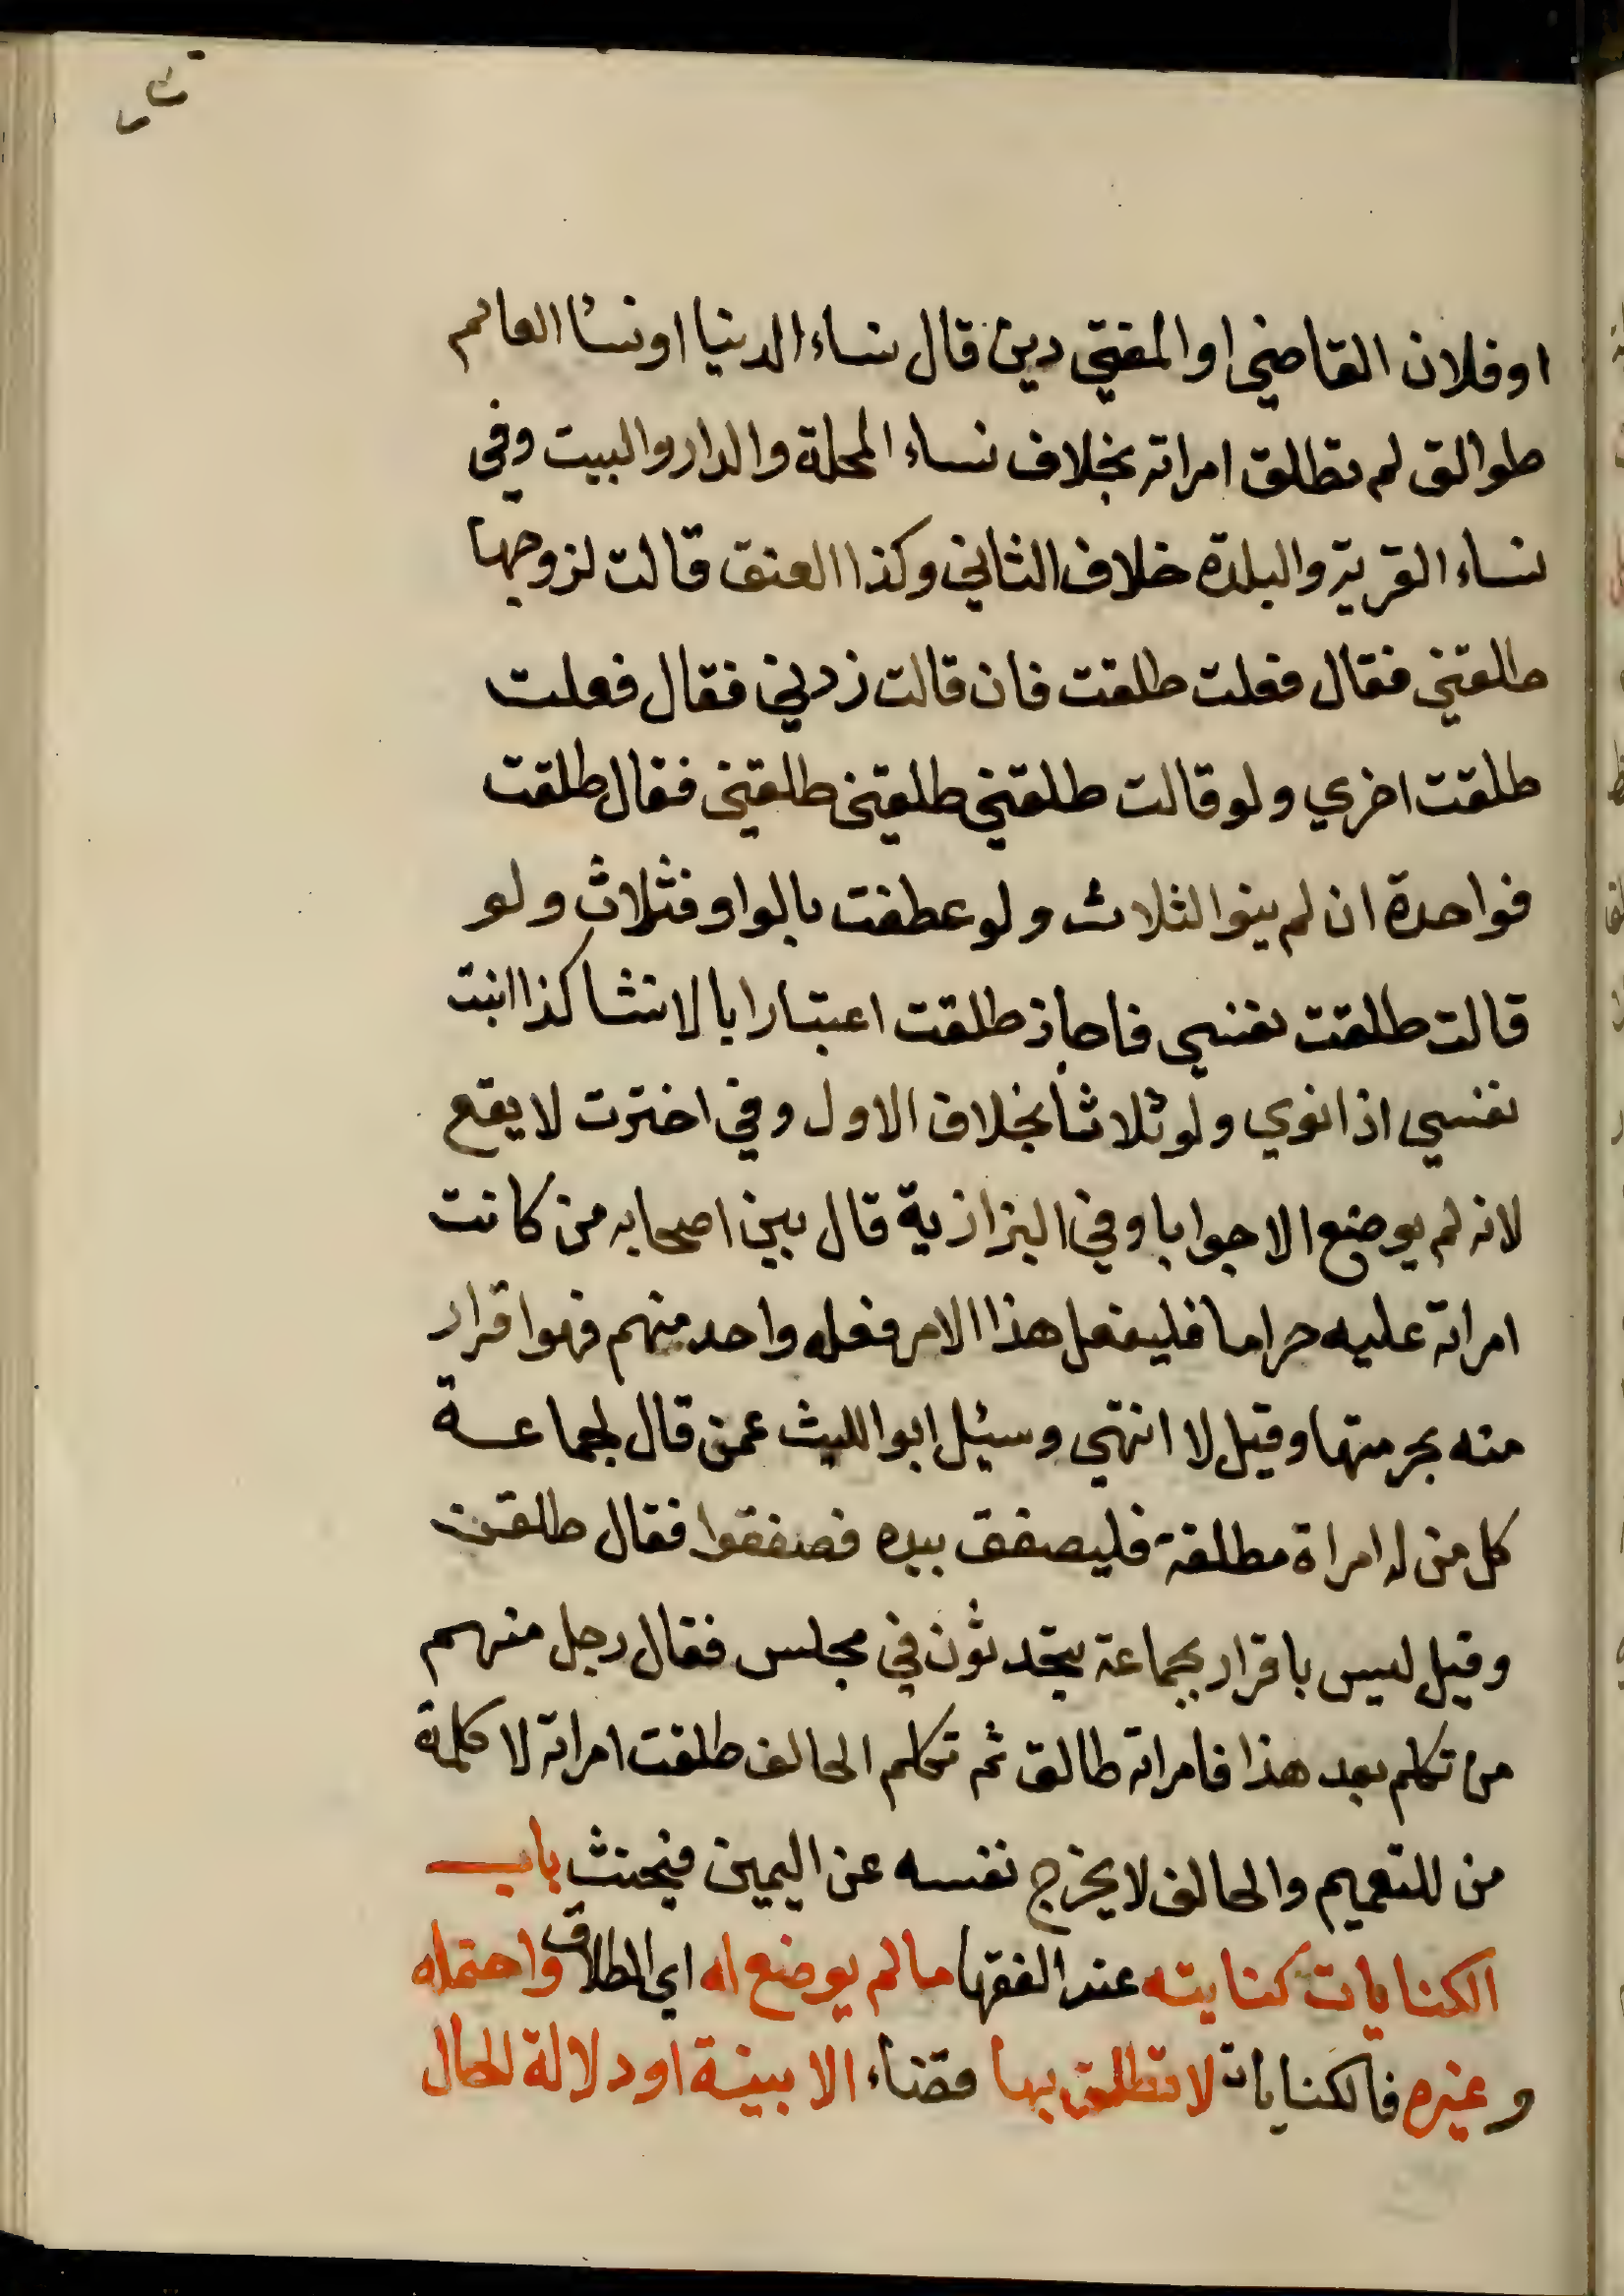 اوفلان القاضي او المفتي دين قال نساء الدنيا اونسا العالم
طوالق لم تطلق امراته بخلاف نساء المحلة والدار والبيت وفي
نساء القرية والبلدة خلاف الثاني وكذا العتق قالت لزوجها
طلقني فقال فعلت طلقت فان قالت زدني فقال فعلت
طلقت اخري ولو قالت طلقني طلقني طلقني فقال طلقت
فواحدة ان لم ينو الثلاث ولو عطفت بالواو فثلاث ولو
قالت طلقت نفسي فاجاز طلقت اعتبارا بالانشا كذا ابنت
نفسي اذا نوي ولو ثلاثا بخلاف الاول وفي اخترت لا يقع
لانه لم يوضع الا جوابا وفي البزازية قال بين اصحابه من كانت
امراته عليه حراما فليفعل هذا الامر فعله واحد منهم فهو اقرار
منه بحرمتها وقيل لا انتهي وسئل ابو الليث عمن قال لجماعة
كل من له امراة مطلقة فليصفق بيده فصفقوا فقال طلقن
وقيل ليس باقرار جماعة يتحدثون في مجلس فقال رجل منهم
من تكلم بعد هذا فامراته طالق ثم تكلم الحالف طلقت امراته لا كلمة
من للتعميم والحالف لا يخرج نفسه عن اليمين فيحنث باب
الكنايات كنايته عند الفقها ما لم يوضع له اي الطلاق واحتمله
وغيره فالكنايات لا تطلق بها قضاء الا ببينة او دلالة للحال